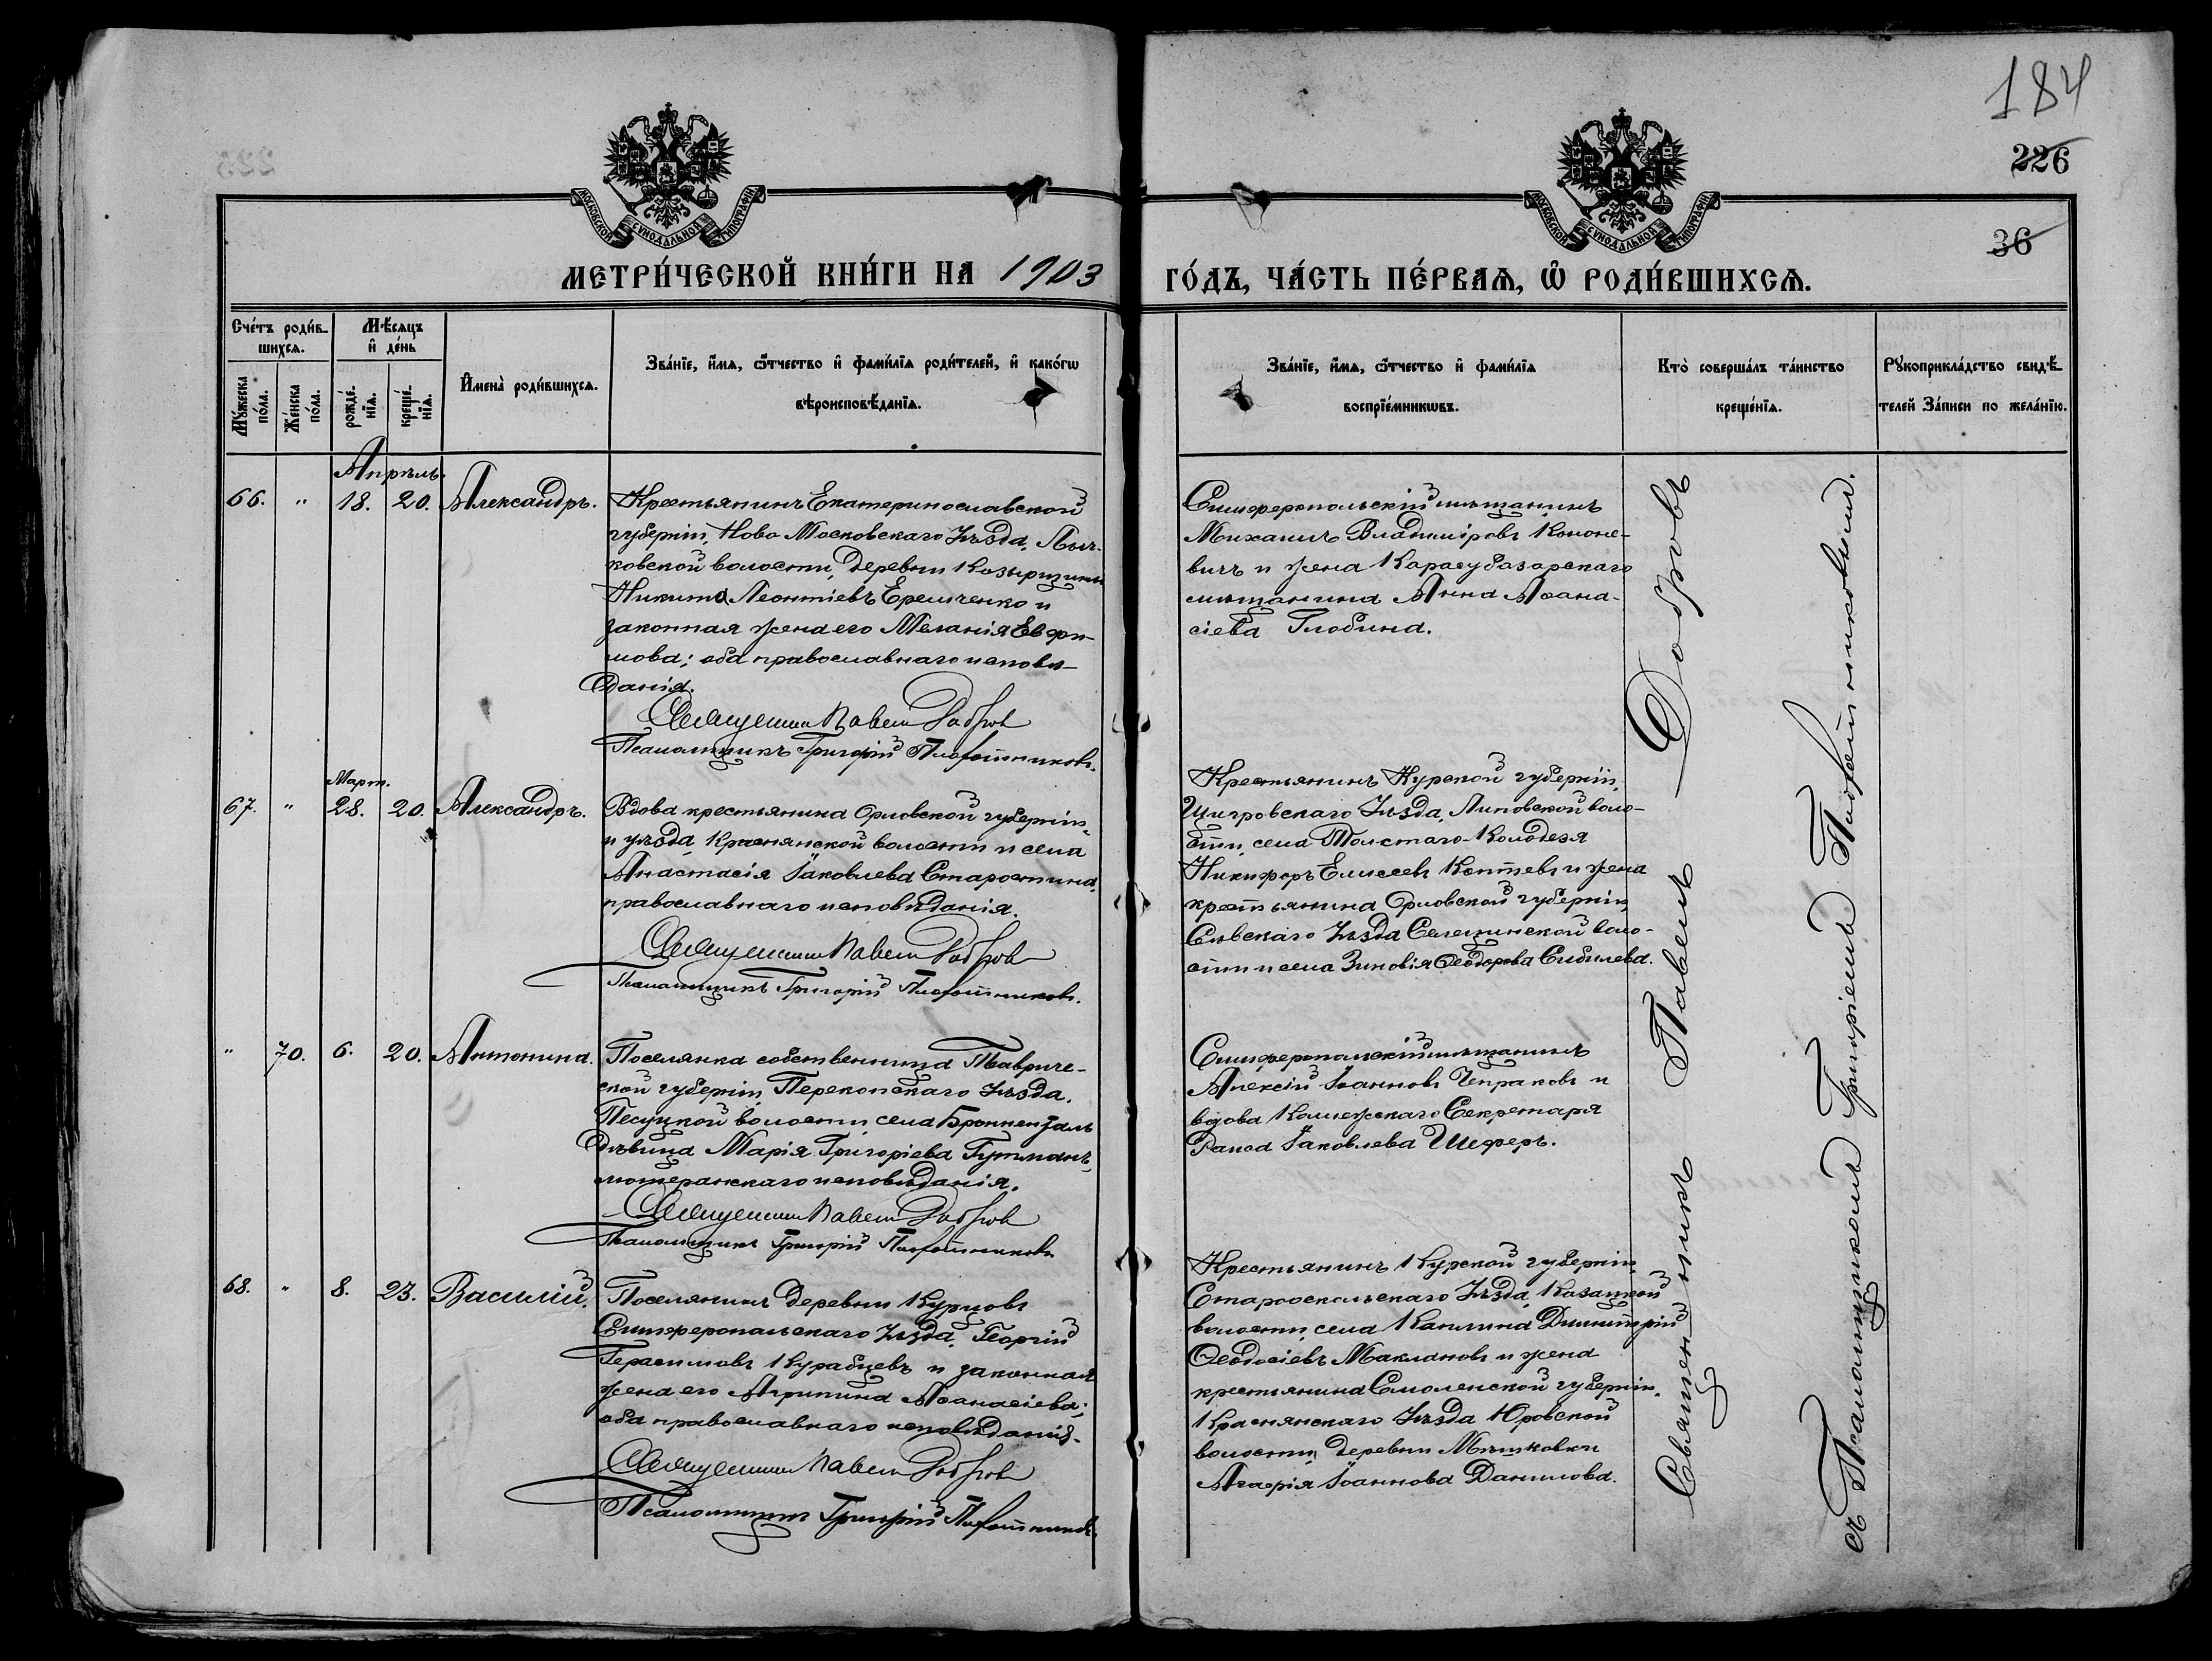 184
226
36
МОСКОВСКОЙ СУНОДАЛЬНОЙ ТИПОГРАФІИ
МОСКОВСКОЙ СУНОДАЛЬНОЙ ТИПОГРАФІИ
МЕТРИ́ЧЕСКОЙ КНИ́ГИ НА 1903
ГО́ДЪ, ЧА́СТЬ ПЕ́РВАѦ, Ѡ҆ РОДИ́ВШИХСѦ.
Сче́тъ роди́в-
шихсѧ.
Мꙋ́жеска по́ла.
Же́нска по́ла.
Мѣ́сѧцъ
и҆ де́нь
рожде́-
нїѧ.
креще́-
нїѧ.
И҆мена̀ роди́вшихсѧ.
Зва́нїе, и҆́мѧ, ѻ҆́тчество и҆ фами́лїѧ роди́телей, и҆ како́гѡ
вѣроисповѣ́данїѧ.
Зва́нїе, и҆́мѧ, ѻ҆́тчество и҆ фами́лїѧ
воспрїе́мникѡвъ.
Кто̀ соверша́лъ та́инство
креще́нїѧ.
Рꙋкоприкла́дство свидѣ́-
телей За́писи по жела́нїю.
Апрѣль.
66. " 18. 20. Александръ.
Крестьянинъ Екатеринославской
губерніи, Ново Московскаго уѣзда, Лыч-
ковской волости, деревни Козырщины
Никита Леонтіевъ Еремченко и
законная жена его Меланія Евфи-
мова; оба православнаго исповѣ-
данія.
Священникъ Павелъ Добровъ
Псаломщикъ Григорій Плотниковъ.
Симферопольскій мѣщанинъ
Михаилъ Владиміровъ Кононе-
вичъ и жена Карасубазарскаго
мѣщанина Анна Аѳана-
сіева Глобина.
Март.
67. " 28. 20. Александръ.
Вдова крестьянина Орловской губерніи,
и уѣзда, Краснянской волости и села
Анастасія Іаковлева Старостина,
православнаго исповѣданія.
Священникъ Павелъ Добровъ
Псаломщикъ Григорій Плотниковъ.
Крестьянинъ Курской губерніи,
Щигровскаго уѣзда, Липовской воло-
сти, села Толстаго-Колодезя
Никифоръ Елисеевъ Коптевъ и жена
крестьянина Орловской губерніи,
Сѣвскаго уѣзда воло-
сти и села Зиновія Ѳеодорова Сибилева.
" 70. 6. 20. Антонина.
Поселянка собственница Тавриче-
ской губерніи, Перекопскаго уѣзда,
волости, села Бронненталь
дѣвица Марія Григоріева Гутманъ,
лютеранскаго исповѣданія.
Священникъ Павелъ Добровъ
Псаломщикъ Григорій Плотниковъ
Симферопольскій мѣщанинъ
Алексій Іоанновъ Чепраковъ и
вдова Коллежскаго Секретаря
Раиса Іаковлева Шеферъ.
68. " 8. 23. Василій.
Поселянинъ деревни Курцовъ
Симферопольскаго уѣзда, Георгій
Герасимовъ Курабцевъ и законная
жена его Агрипина Аѳанасіева;
оба православнаго исповѣданія.
Священникъ Павелъ Добровъ
Псаломщикъ Григорій Плотниковъ.
Крестьянинъ Курской губерніи,
Старооскольскаго уѣзда, Казацкой
волости, села Каплина Димитрій
Ѳеодосіевъ Маклаковъ и жена
крестьянина Смоленской губерніи,
Краснянскаго уѣзда Юровской
волости, деревни Мѣшковки
Агафія Іоаннова Данилова.
Священникъ Павелъ Добровъ
съ Псаломщикомъ Григоріемъ Плотниковымъ.